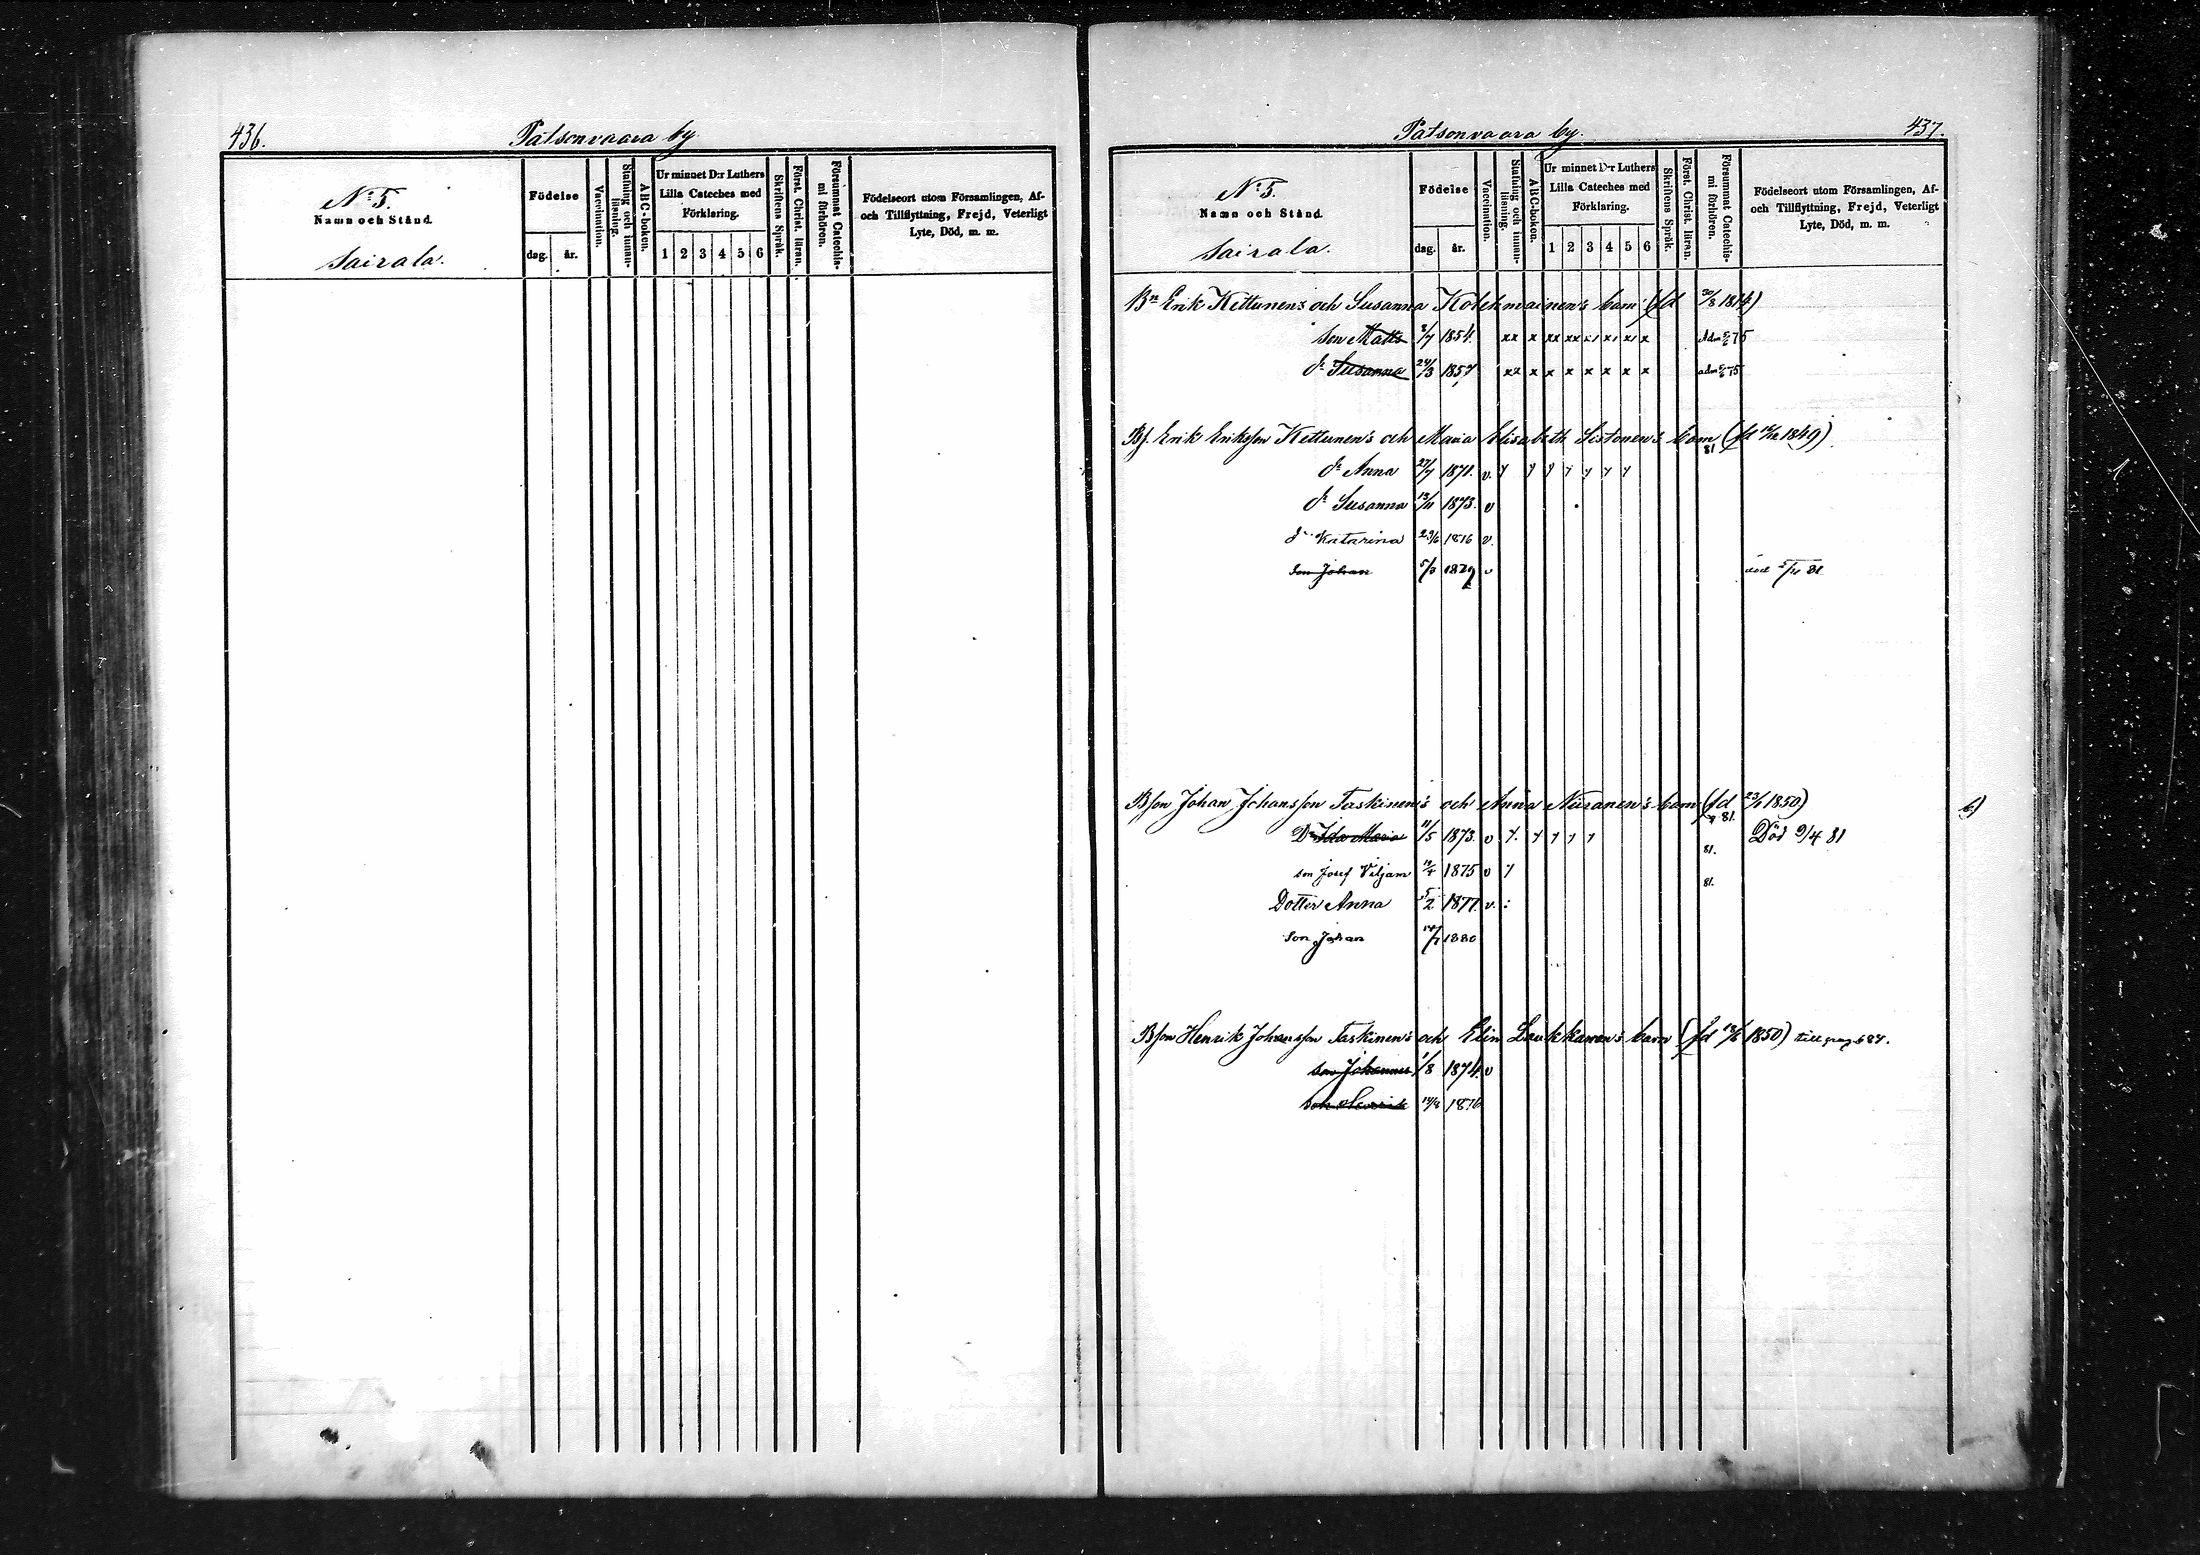 436.
Patsonvaara by.
No 5.
Namn och Stånd.
Sairala.
Födelse
dag. år.
Vaccination.
Stafning och innanläsning.
ABC-boken.
Ur minnet D:r Luthers
Lilla Cateches med
Förklaring.
1 2 3 4 5 6
Skriftens Språk.
Först. Christ. läran.
Försummat Catechismi förhören.
Födelseort utom Församlingen, Af-
och Tillflyttning, Frejd, Veterligt
Lyte, Död, m. m.
Patsonvaara by.
437.
No 5.
Namn och Stånd.
Sairala.
Födelse
dag. år.
Vaccination.
Stafning och innanläsning.
ABC-boken.
Ur minnet D:r Luthers
Lilla Cateches med
Förklaring.
1 2 3 4 5 6
Skriftens Språk.
Först. Christ. läran.
Försummat Catechismi förhören.
Födelseort utom Församlingen, Af-
och Tillflyttning, Frejd, Veterligt
Lyte, Död, m. m.
Bn Erik Kettunens och Susanna Kolehmainen's barn (fd 30/8 1814)
son Matts 2/7 1854. xx x xx xx xx x Adm 75
dr Susanna 24/3 1857 xx x x x x x x x adm 75
Bf. Erik Eriksson Kettunen's och Maria Elisabeth Sistonen's barn (fd 1849)
81
dr Anna 27/7 1871. v.
dr Susanna 13/11 1873. v
dr Katarina 29/6 1876 v.
son Johan 5/3 1879 v död 81
Bson Johan Johansson Taskinen's och Anna Niiranen's barn (fd 23/1 1850)
81.
Dr Ida Maria 11/5 1873. v Död 9/4 81
81.
son Josef Viljam 1875 v
81.
Dotter Anna 5/2 1877 v. :
son Johan 1880
Bson Henrik Johansson Taskinen's och Elin Laukkanen's barn (fd 1850) till pag 687.
son Johannes 1/8 1874. v
son Henrik 14/8 1876